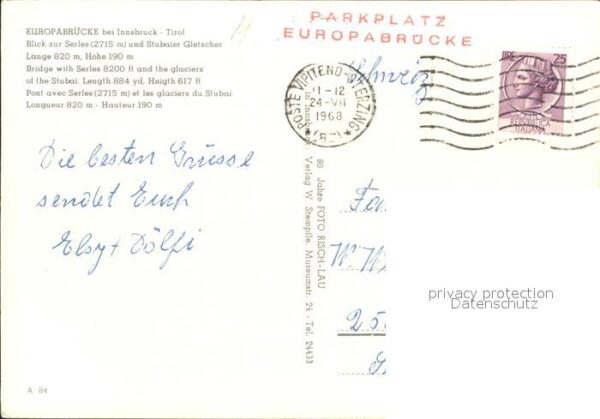 EUROPABRÜCKE bei Innsbruck - Tirol
Blick zur Serles (2715 m) und Stubaier Gletscher
Länge 820 m, Höhe 190 m
Bridge with Serles 8200 ft and the glaciers
of the Stubai. Length 884 yd, Heigth 617 ft
Pont avec Serles (2715 m) et les glaciers du Stubai.
Longueur 820 m - Hauteur 190 m
PARKPLATZ
EUROPABRÜCKE
Schweiz
POSTE VIPITENO-STERZING
11-12
24-VII
1968
LIRE 25
REPUBBLICA
ITALIANA
Die besten Grüsse
sendet Euch
Elsy + Dölfi
80 Jahre FOTO RISCH-LAU
Verlag W. Stempfle, Museumstr. 24 - Tel. 24433
Fa
W. W
25
privacy protection
Datenschutz
A 84